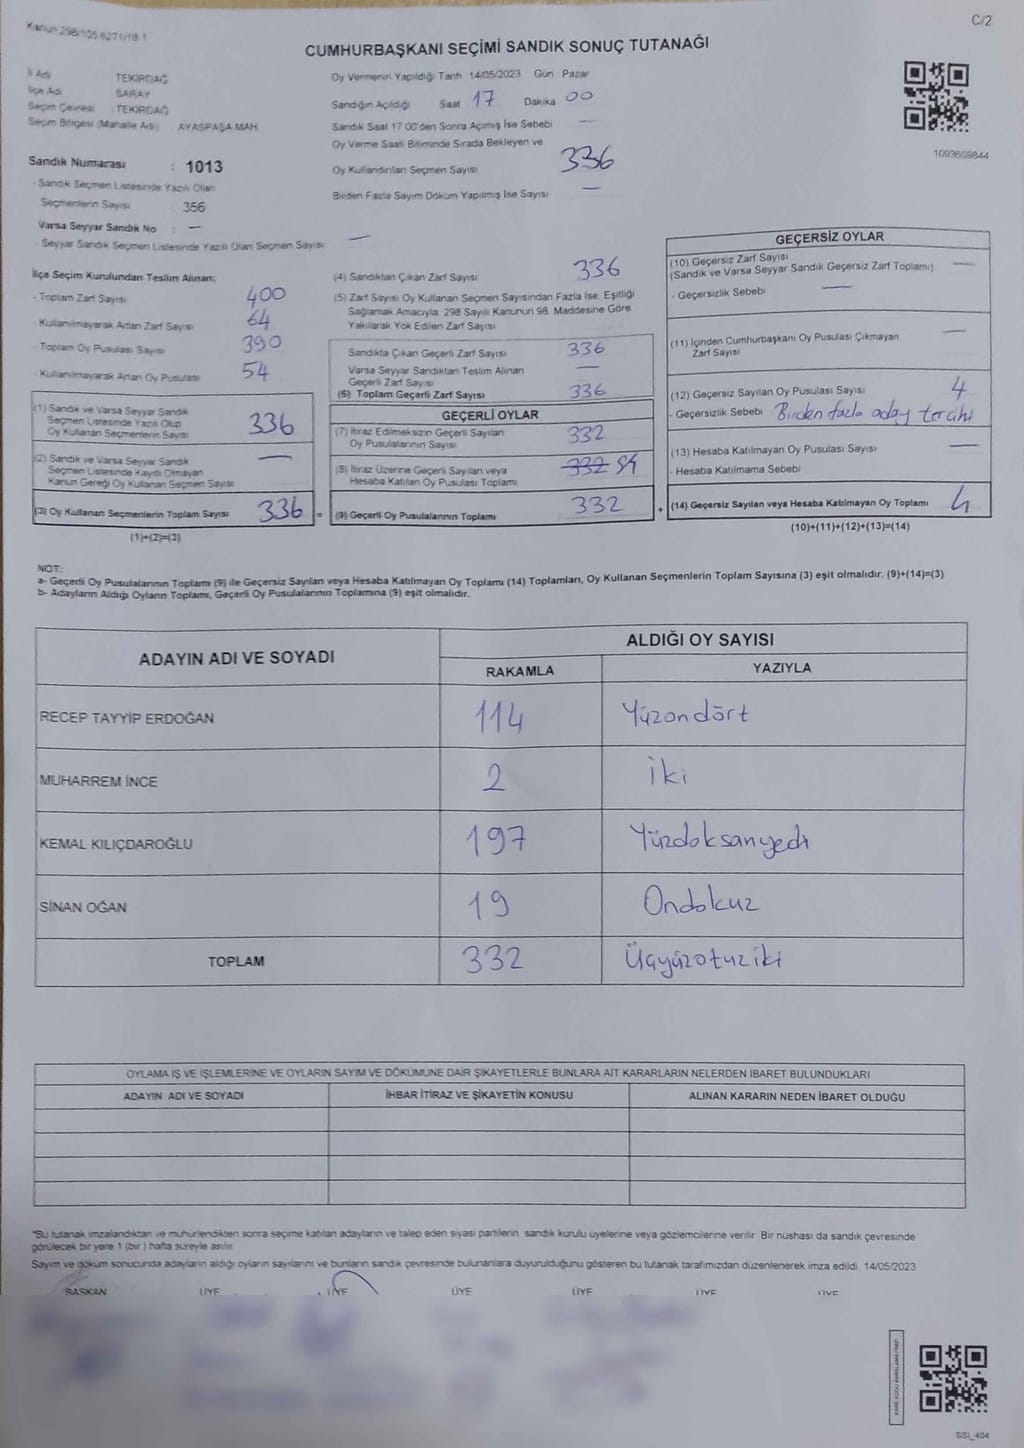 Kanun 298/105 6271/18-1
C/2
CUMHURBAŞKANI SEÇİMİ SANDIK SONUÇ TUTANAĞI
İl Adı TEKİRDAĞ
İlçe Adı SARAY
Seçim Çevresi : TEKİRDAĞ
Seçim Bölgesi (Mahalle Adı) AYASPAŞA MAH.
Oy Vermenin Yapıldığı Tarih 14/05/2023 Gün Pazar
Sandığın Açıldığı Saat 17 Dakika 00
Sandık Saat 17:00'den Sonra Açılmış İse Sebebi —
Oy Verme Saati Bitiminde Sırada Bekleyen ve
Oy Kullandırılan Seçmen Sayısı 336
Birden Fazla Sayım Döküm Yapılmış İse Sayısı —
1093609844
Sandık Numarası : 1013
- Sandık Seçmen Listesinde Yazılı Olan
Seçmenlerin Sayısı : 356
Varsa Seyyar Sandık No : —
- Seyyar Sandık Seçmen Listesinde Yazılı Olan Seçmen Sayısı —
İlçe Seçim Kurulundan Teslim Alınan:
- Toplam Zarf Sayısı 400
- Kullanılmayarak Artan Zarf Sayısı 64
- Toplam Oy Pusulası Sayısı 390
- Kullanılmayarak Artan Oy Pusulası 54
(1) Sandık ve Varsa Seyyar Sandık
Seçmen Listesinde Yazılı Olup
Oy Kullanan Seçmenlerin Sayısı 336
(2) Sandık ve Varsa Seyyar Sandık
Seçmen Listesinde Kayıtlı Olmayan
Kanun Gereği Oy Kullanan Seçmen Sayısı —
(3) Oy Kullanan Seçmenlerin Toplam Sayısı 336 =
(1)+(2)=(3)
(4) Sandıktan Çıkan Zarf Sayısı 336
(5) Zarf Sayısı Oy Kullanan Seçmen Sayısından Fazla İse, Eşitliği
Sağlamak Amacıyla, 298 Sayılı Kanunun 98. Maddesine Göre
Yakılarak Yok Edilen Zarf Sayısı
Sandıkta Çıkan Geçerli Zarf Sayısı 336
Varsa Seyyar Sandıktan Teslim Alınan
Geçerli Zarf Sayısı —
(6) Toplam Geçerli Zarf Sayısı 336
GEÇERLİ OYLAR
(7) İtiraz Edilmeksizin Geçerli Sayılan
Oy Pusulalarının Sayısı 332
(8) İtiraz Üzerine Geçerli Sayılan veya
Hesaba Katılan Oy Pusulası Toplamı 332
(9) Geçerli Oy Pusulalarının Toplamı 332 +
GEÇERSİZ OYLAR
(10) Geçersiz Zarf Sayısı
(Sandık ve Varsa Seyyar Sandık Geçersiz Zarf Toplamı) —
- Geçersizlik Sebebi —
(11) İçinden Cumhurbaşkanı Oy Pusulası Çıkmayan
Zarf Sayısı —
(12) Geçersiz Sayılan Oy Pusulası Sayısı 4
- Geçersizlik Sebebi Birden fazla aday tercihi
(13) Hesaba Katılmayan Oy Pusulası Sayısı —
- Hesaba Katılmama Sebebi
(14) Geçersiz Sayılan veya Hesaba Katılmayan Oy Toplamı 4
(10)+(11)+(12)+(13)=(14)
NOT:
a- Geçerli Oy Pusulalarının Toplamı (9) ile Geçersiz Sayılan veya Hesaba Katılmayan Oy Toplamı (14) Toplamları, Oy Kullanan Seçmenlerin Toplam Sayısına (3) eşit olmalıdır. (9)+(14)=(3)
b- Adayların Aldığı Oyların Toplamı, Geçerli Oy Pusulalarının Toplamına (9) eşit olmalıdır.
ADAYIN ADI VE SOYADI
ALDIĞI OY SAYISI
RAKAMLA YAZIYLA
RECEP TAYYİP ERDOĞAN 114 Yüzondört
MUHARREM İNCE 2 İki
KEMAL KILIÇDAROĞLU 197 Yüzdoksanyedi
SİNAN OĞAN 19 Ondokuz
TOPLAM 332 Üçyüzotuziki
OYLAMA İŞ VE İŞLEMLERİNE VE OYLARIN SAYIM VE DÖKÜMÜNE DAİR ŞİKAYETLERLE BUNLARA AİT KARARLARIN NELERDEN İBARET BULUNDUKLARI
ADAYIN ADI VE SOYADI İHBAR İTİRAZ VE ŞİKAYETİN KONUSU ALINAN KARARIN NEDEN İBARET OLDUĞU
"Bu tutanak imzalandıktan ve mühürlendikten sonra seçime katılan adayların ve talep eden siyasi partilerin sandık kurulu üyelerine veya gözlemcilerine verilir. Bir nüshası da sandık çevresinde
görülecek bir yere 1 (bir ) hafta süreyle asılır.
Sayım ve döküm sonucunda adayların aldığı oyların sayılarını ve bunların sandık çevresinde bulunanlara duyurulduğunu gösteren bu tutanak tarafımızdan düzenlenerek imza edildi. 14/05/2023
BAŞKAN ÜYE ÜYE ÜYE ÜYE ÜYE ÜYE
SSI_404